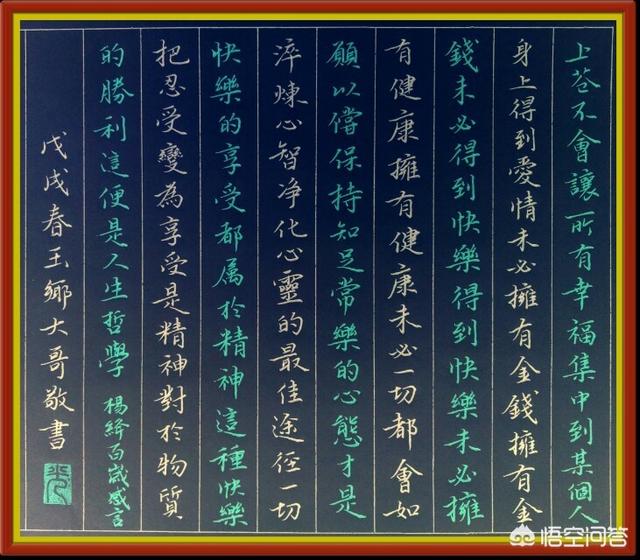 上苍不會讓所有幸福集中到某個人
身上得到愛情未必擁有金錢擁有金
錢未必得到快樂得到快樂未必擁
有健康擁有健康未必一切都會如
願以償保持知足常樂的心態才是
淬煉心智净化心靈的最佳途径一切
快樂的享受都属於精神這種快樂
把忍受變為享受是精神對於物質
的勝利這便是人生哲學 楊絳百歲感言
戊戌春王鄉大哥敬書
悟空问答